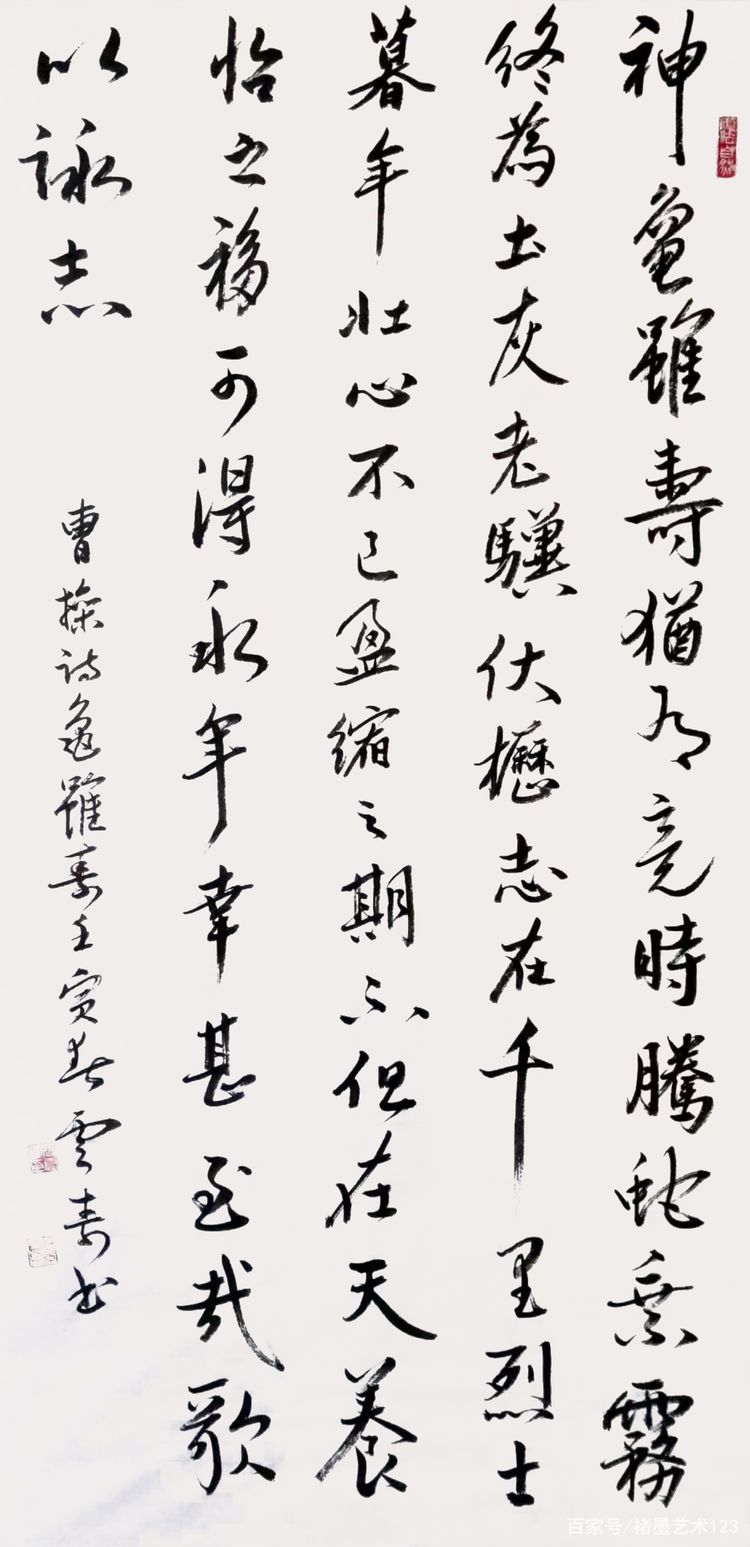 神龜雖壽猶有竟時騰蛇乘霧
終為土灰老驥伏櫪志在千里烈士
暮年壯心不已盈縮之期不但在天養
怡之福可得永年幸甚至哉歌
以詠志
曹操詩龜雖壽壬寅春雲壽書
百家号/楮墨艺术123